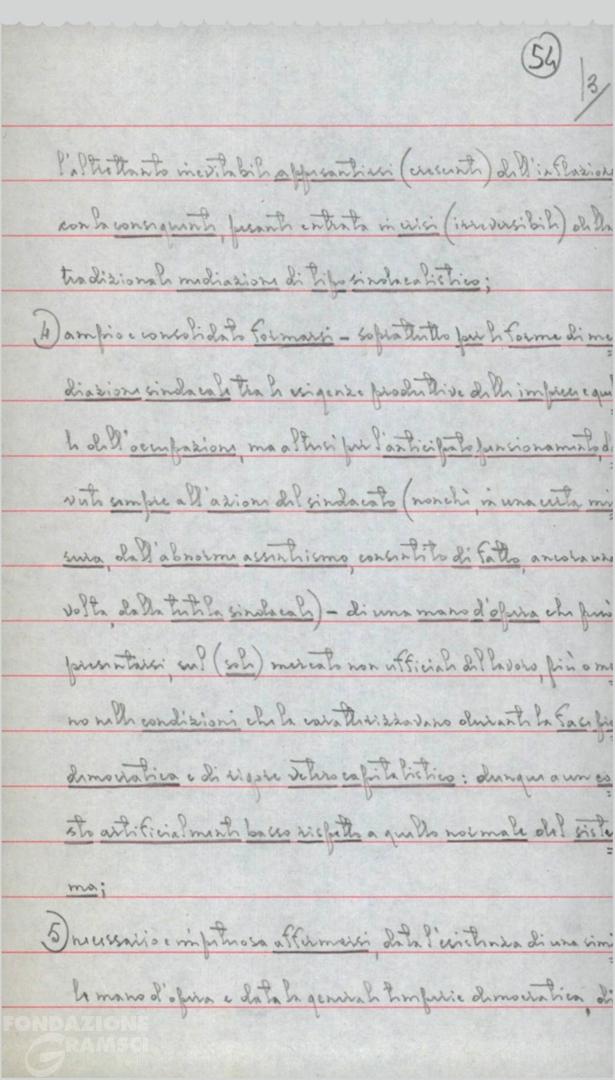 54
/3
l'altrettanto inevitabile appesantirsi (crescente) dell'inflazion
con la conseguente, pesante entrata in crisi (irreversibile) della
tradizionale mediazione di tipo sindacalistico;
4) ampio e consolidato formarsi – soprattutto per le forme di me
diazione sindacale tra le esigenze produttive delle imprese e quel
le dell'occupazione, ma altresì per l'anticipato funzionamento, do
vuto sempre all'azione del sindacato (nonché, in una certa mi
sura, dall'abnorme assenteismo, consentito di fatto, ancora una
volta, dalla tutela sindacale) – di una mano d'opera che può
presentarsi, sul (solo) mercato non ufficiale del lavoro, più o me
no nelle condizioni che la caratterizzavano durante la fase pre
democratica e di rigore veterocapitalistico: dunque a un co
sto artificialmente basso rispetto a quello normale del siste
ma;
5) necessario e impetuoso affermarsi, data l'esistenza di una simi
le mano d'opera e data la generale temperie democratica, di
FONDAZIONE
GRAMSCI